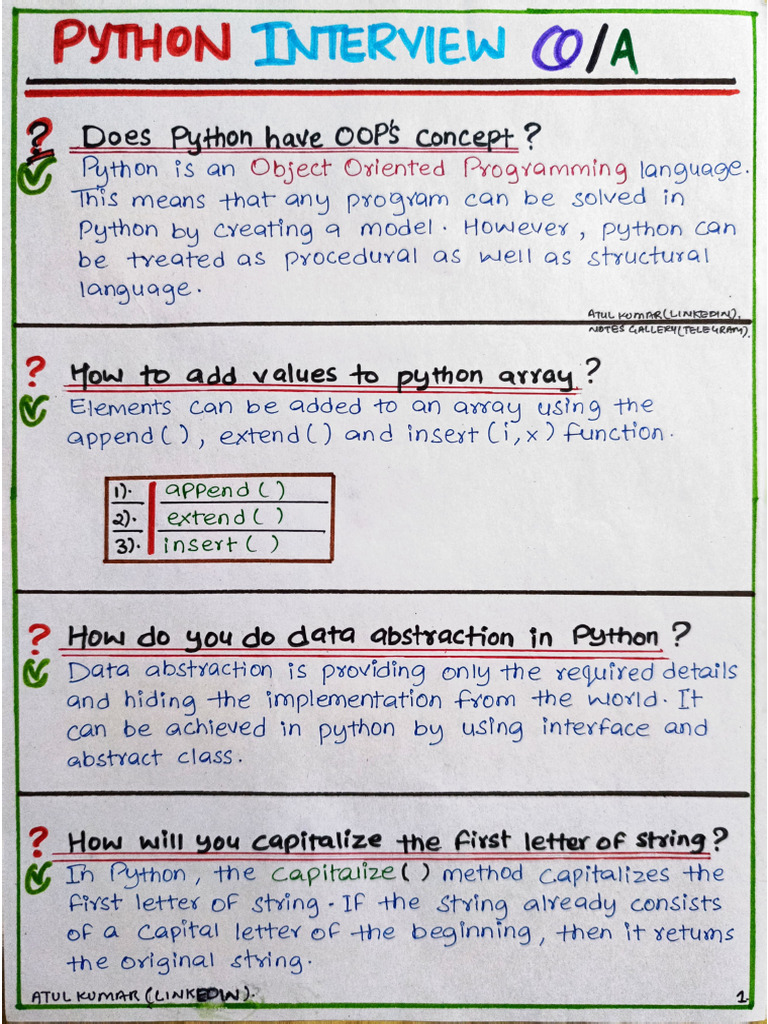 PYTHON INTERVIEW Q/A
? Does Python have OOP's concept?
Python is an Object Oriented Programming language.
This means that any program can be solved in
Python by creating a model. However, python can
be treated as procedural as well as structural
language.
ATUL KUMAR (LINKEDIN).
NOTES GALLERY (TELEGRAM).
? How to add values to python array?
Elements can be added to an array using the
append(), extend() and insert(i,x) function.
1). append()
2). extend()
3). insert()
? How do you do data abstraction in Python?
Data abstraction is providing only the required details
and hiding the implementation from the world. It
can be achieved in python by using interface and
abstract class.
? How will you capitalize the first letter of string?
In Python, the capitalize() method capitalizes the
first letter of string. If the string already consists
of a capital letter of the beginning, then it returns
the original string.
ATUL KUMAR (LINKEDIN).
1.